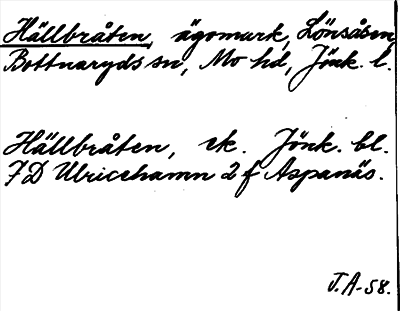 Hällbråten, ägomark, Lönsåsen,
Bottnaryds sn, Mo hd, Jönk. l.
Hällbråten, ek. Jönk. bl.
7D Ulricehamn 2 f Aspanäs.
J.A-58.